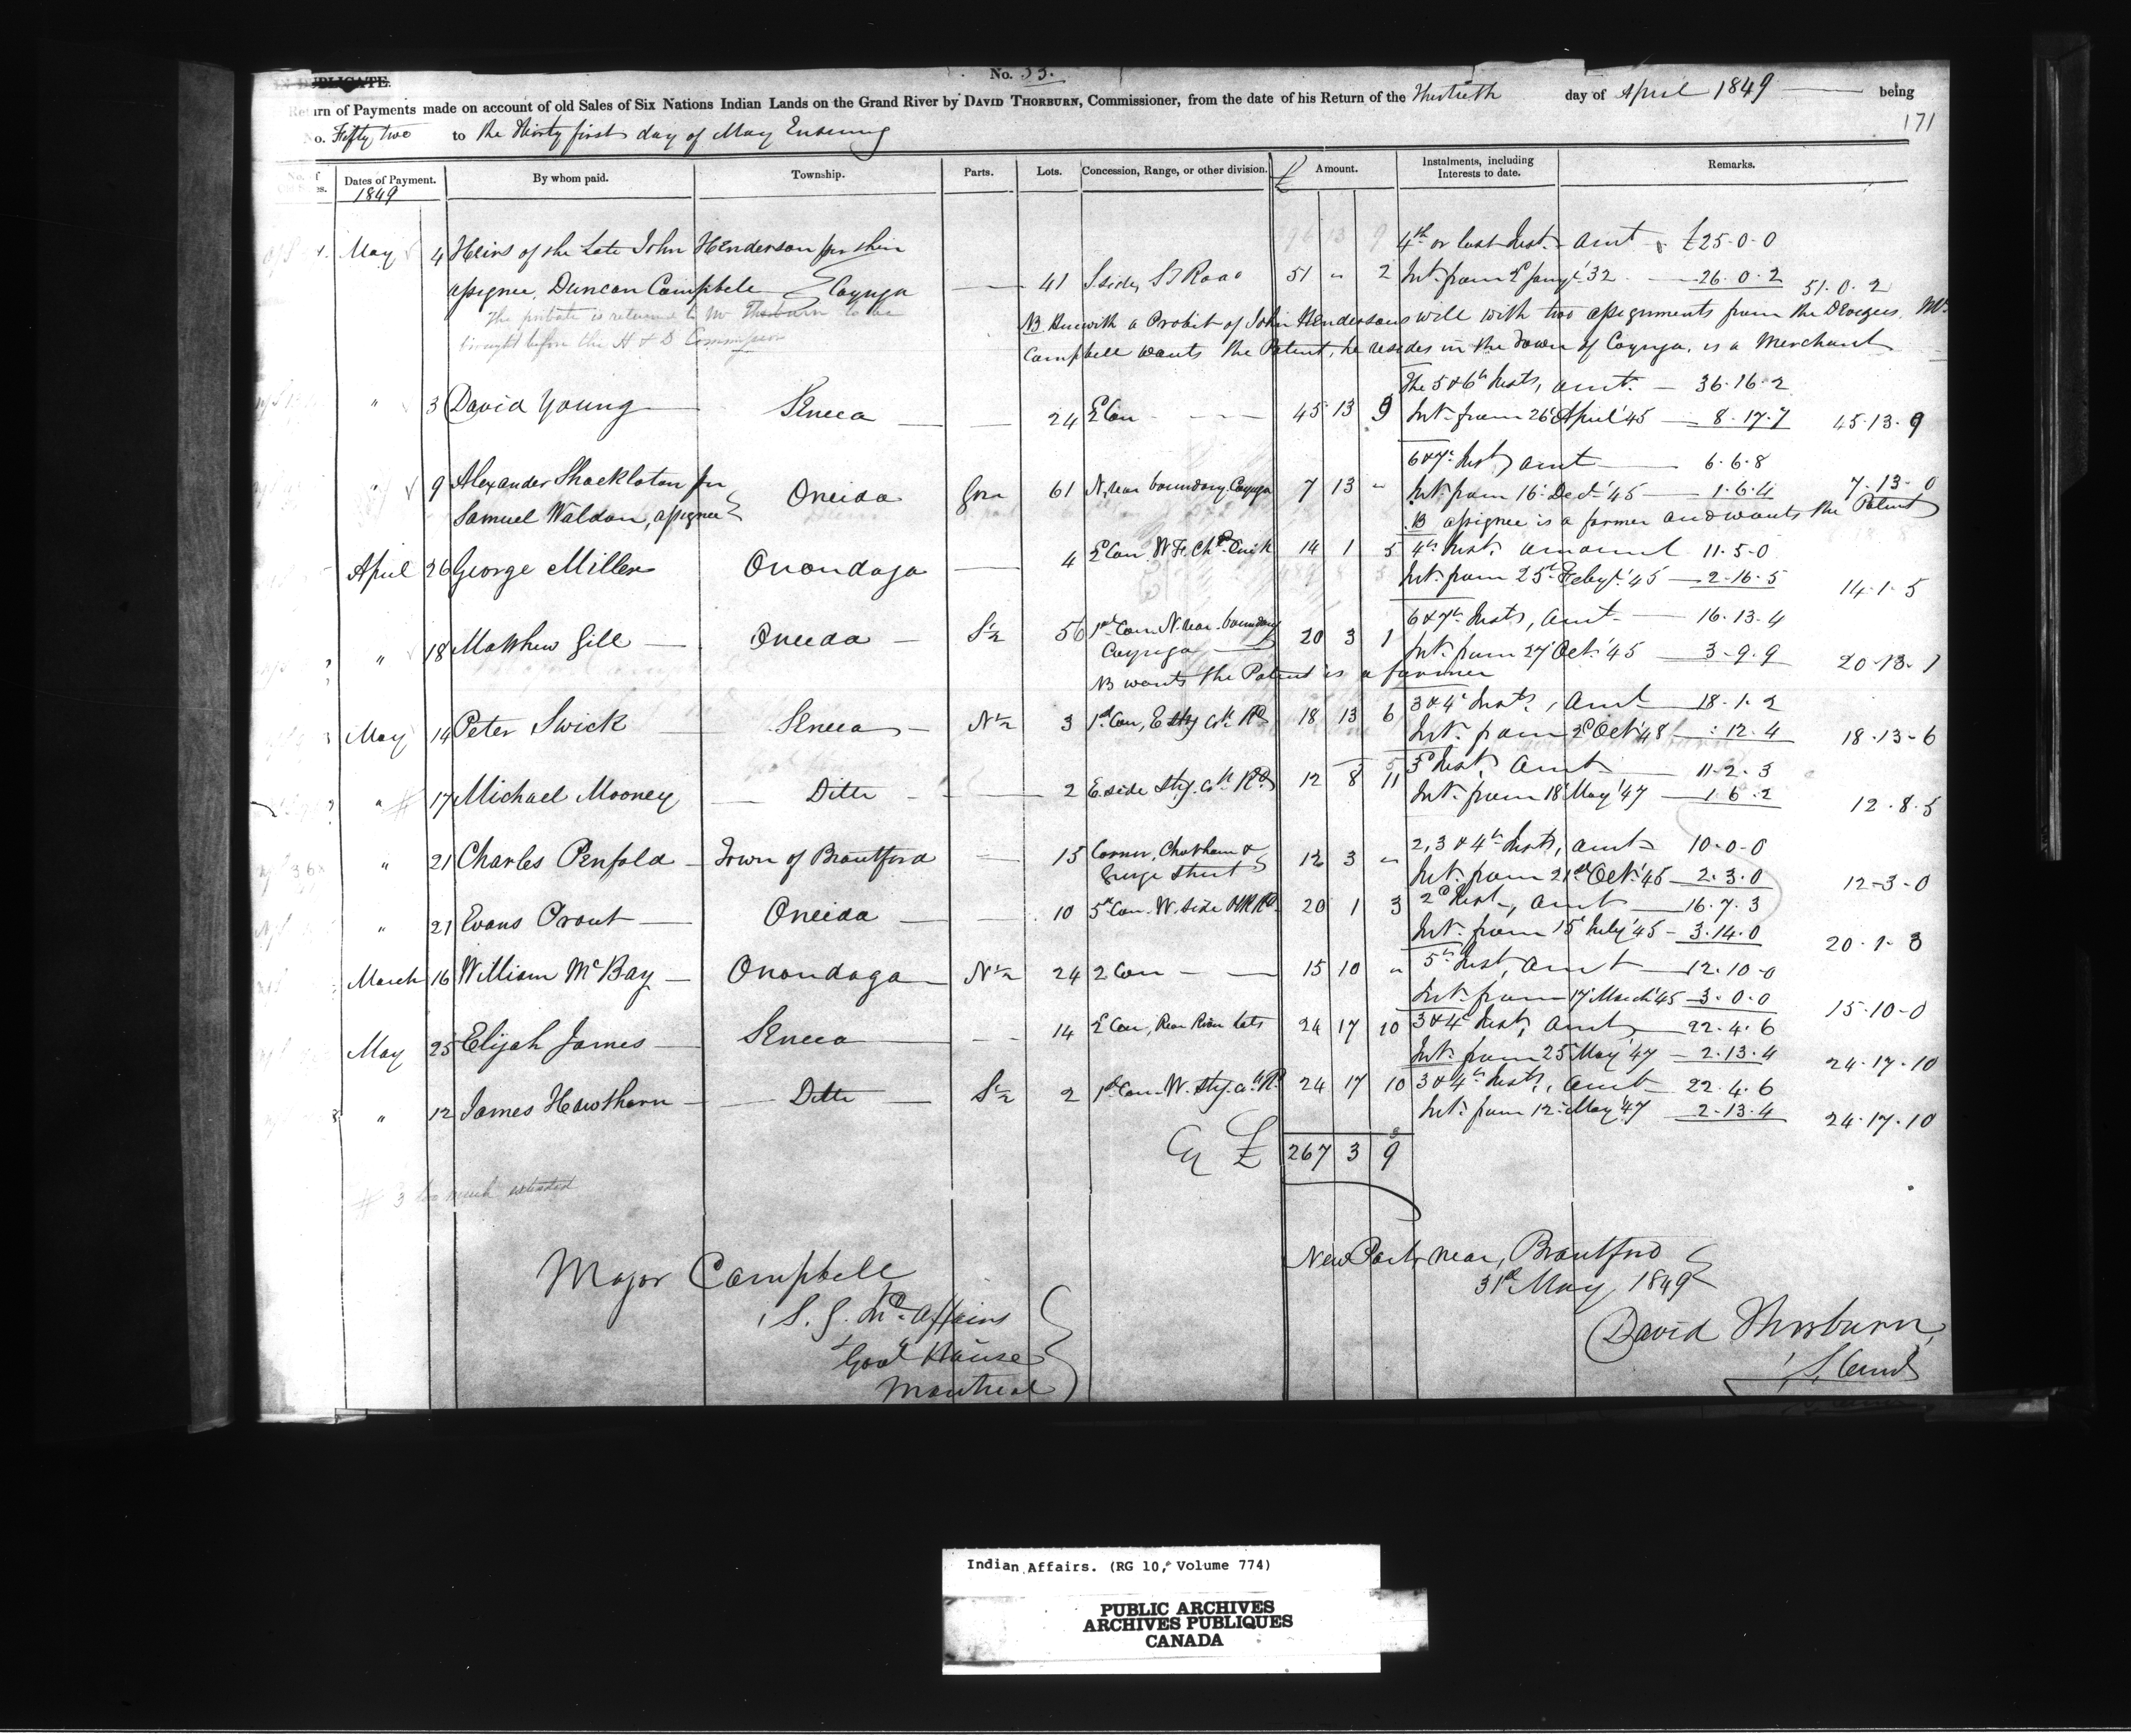 IN DUPLICATE.
No. 53.
Return of Payments made on account of old Sales of Six Nations Indian Lands on the Grand River by DAVID THORBURN, Commissioner, from the date of his Return of the Thirtieth day of April 1849 being
No. Fifty two to the thirty first day of May Ensuing
171
Dates of Payment. By whom paid. Township. Parts. Lots. Concession, Range, or other division. £ Amount. Instalments, including Interests to date. Remarks.
1849
May 4 Heirs of the Late John Henderson per their 4th or last Inst. amt £25-0-0
assignee, Duncan Campbell Cayuga 41 S side, S Road 51 " 2 Int. from 2d Jany '32 26.0.2 51.0.2
The probate is returned to Mr Thorburn to be
brought before the H & D Commission
NB Herewith a Probit of John Hendersons will with two assignments from the Devizees, Mr
Campbell wants the Patent, he resides in the Town of Cayuga, is a Merchant
The 5 & 6th Insts, amt. 36.16.2
" 3 David Young Seneca 24 2 Con 45 13 9 Int. from 26 April '45 8.17.7 45.13.9
6 & 7th Insts amt 6.6.8
" 9 Alexander Shackloton per Oneida 61 N, near boundary Cayuga 7 13 " Int. from 16 Dec. '45 1.6.4 7.13-0
Samuel Waldon, assignee NB assignee is a farmer and wants the Patent
April 26 George Miller Onondaga 4 2 Con 14 1 5 4th Inst. amount 11.5-0
Int. from 25th Feby '45 2-16-5 14-1-5
6 & 7th Insts, amt 16.13.4
" 18 Matthew Gill Oneida S ½ 56 1st Con. N. near boundary 20 3 1 Int. from 27 Oct. '45 3-9.9 20-13-1
Cayuga
NB wants the Patent is a farmer
May 14 Peter Swick Seneca N ½ 3 1st Con, E Stg Ch Rd 18 13 6 3 & 4 Insts, amt 18.1.2
Int. from 2d Oct '48 :12.4 18-13-6
3d Inst, amt 11.2.3
" 17 Michael Mooney Ditto 2 E. side Stg. Ch Rd 12 8 11 Int. from 18 May '47 1.6.2 12.8.5
" 21 Charles Penfold Town of Brantford 15 Corner, Chatham & 12 3 " 2, 3 & 4th Insts, amt 10-0-0
George Street Int. from 21st Oct. '45 2.3.0 12-3-0
" 21 Evans Prout Oneida 10 5th Con. W. Side PR Rd 20 1 3 2d Inst, amt 16.7.3
Int. from 15 July '45 3.14.0 20-1-3
March 16 William McBay Onondaga N ½ 24 2 Con 15 10 " 5th Inst, amt 12.10-0
Int. from 17 March '45 3.0.0 15-10-0
May 25 Elijah James Seneca 14 2 Con, Rear River Lots 24 17 10 3 & 4 Inst, amt 22.4.6
Int. from 25 May '47 2.13.4 24.17.10
" 12 James Hawthorn Ditto S ½ 2 1st Con. W. Stg. Ch Rd 24 17 10 3 & 4th Insts, amt 22.4.6
Int. from 12 May '47 2.13.4 24.17.10
£ 267 3 9
# 3 too much extended
New Port, near, Brantford
31st May, 1849
Major Campbell
S. G. Ind. Affairs
Govt House
Montreal
David Thorburn,
Indian Affairs. (RG 10, Volume 774)
PUBLIC ARCHIVES
ARCHIVES PUBLIQUES
CANADA